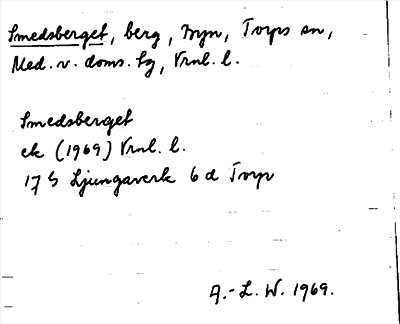 Smedsberget, berg, Byn, Torps sn,
Med. v. doms. sg, Vrnl. l.
Smedsberget
ek (1969) Vrnl. l.
17 S Ljungaverk 6 d Torp
A.-L. W. 1969.